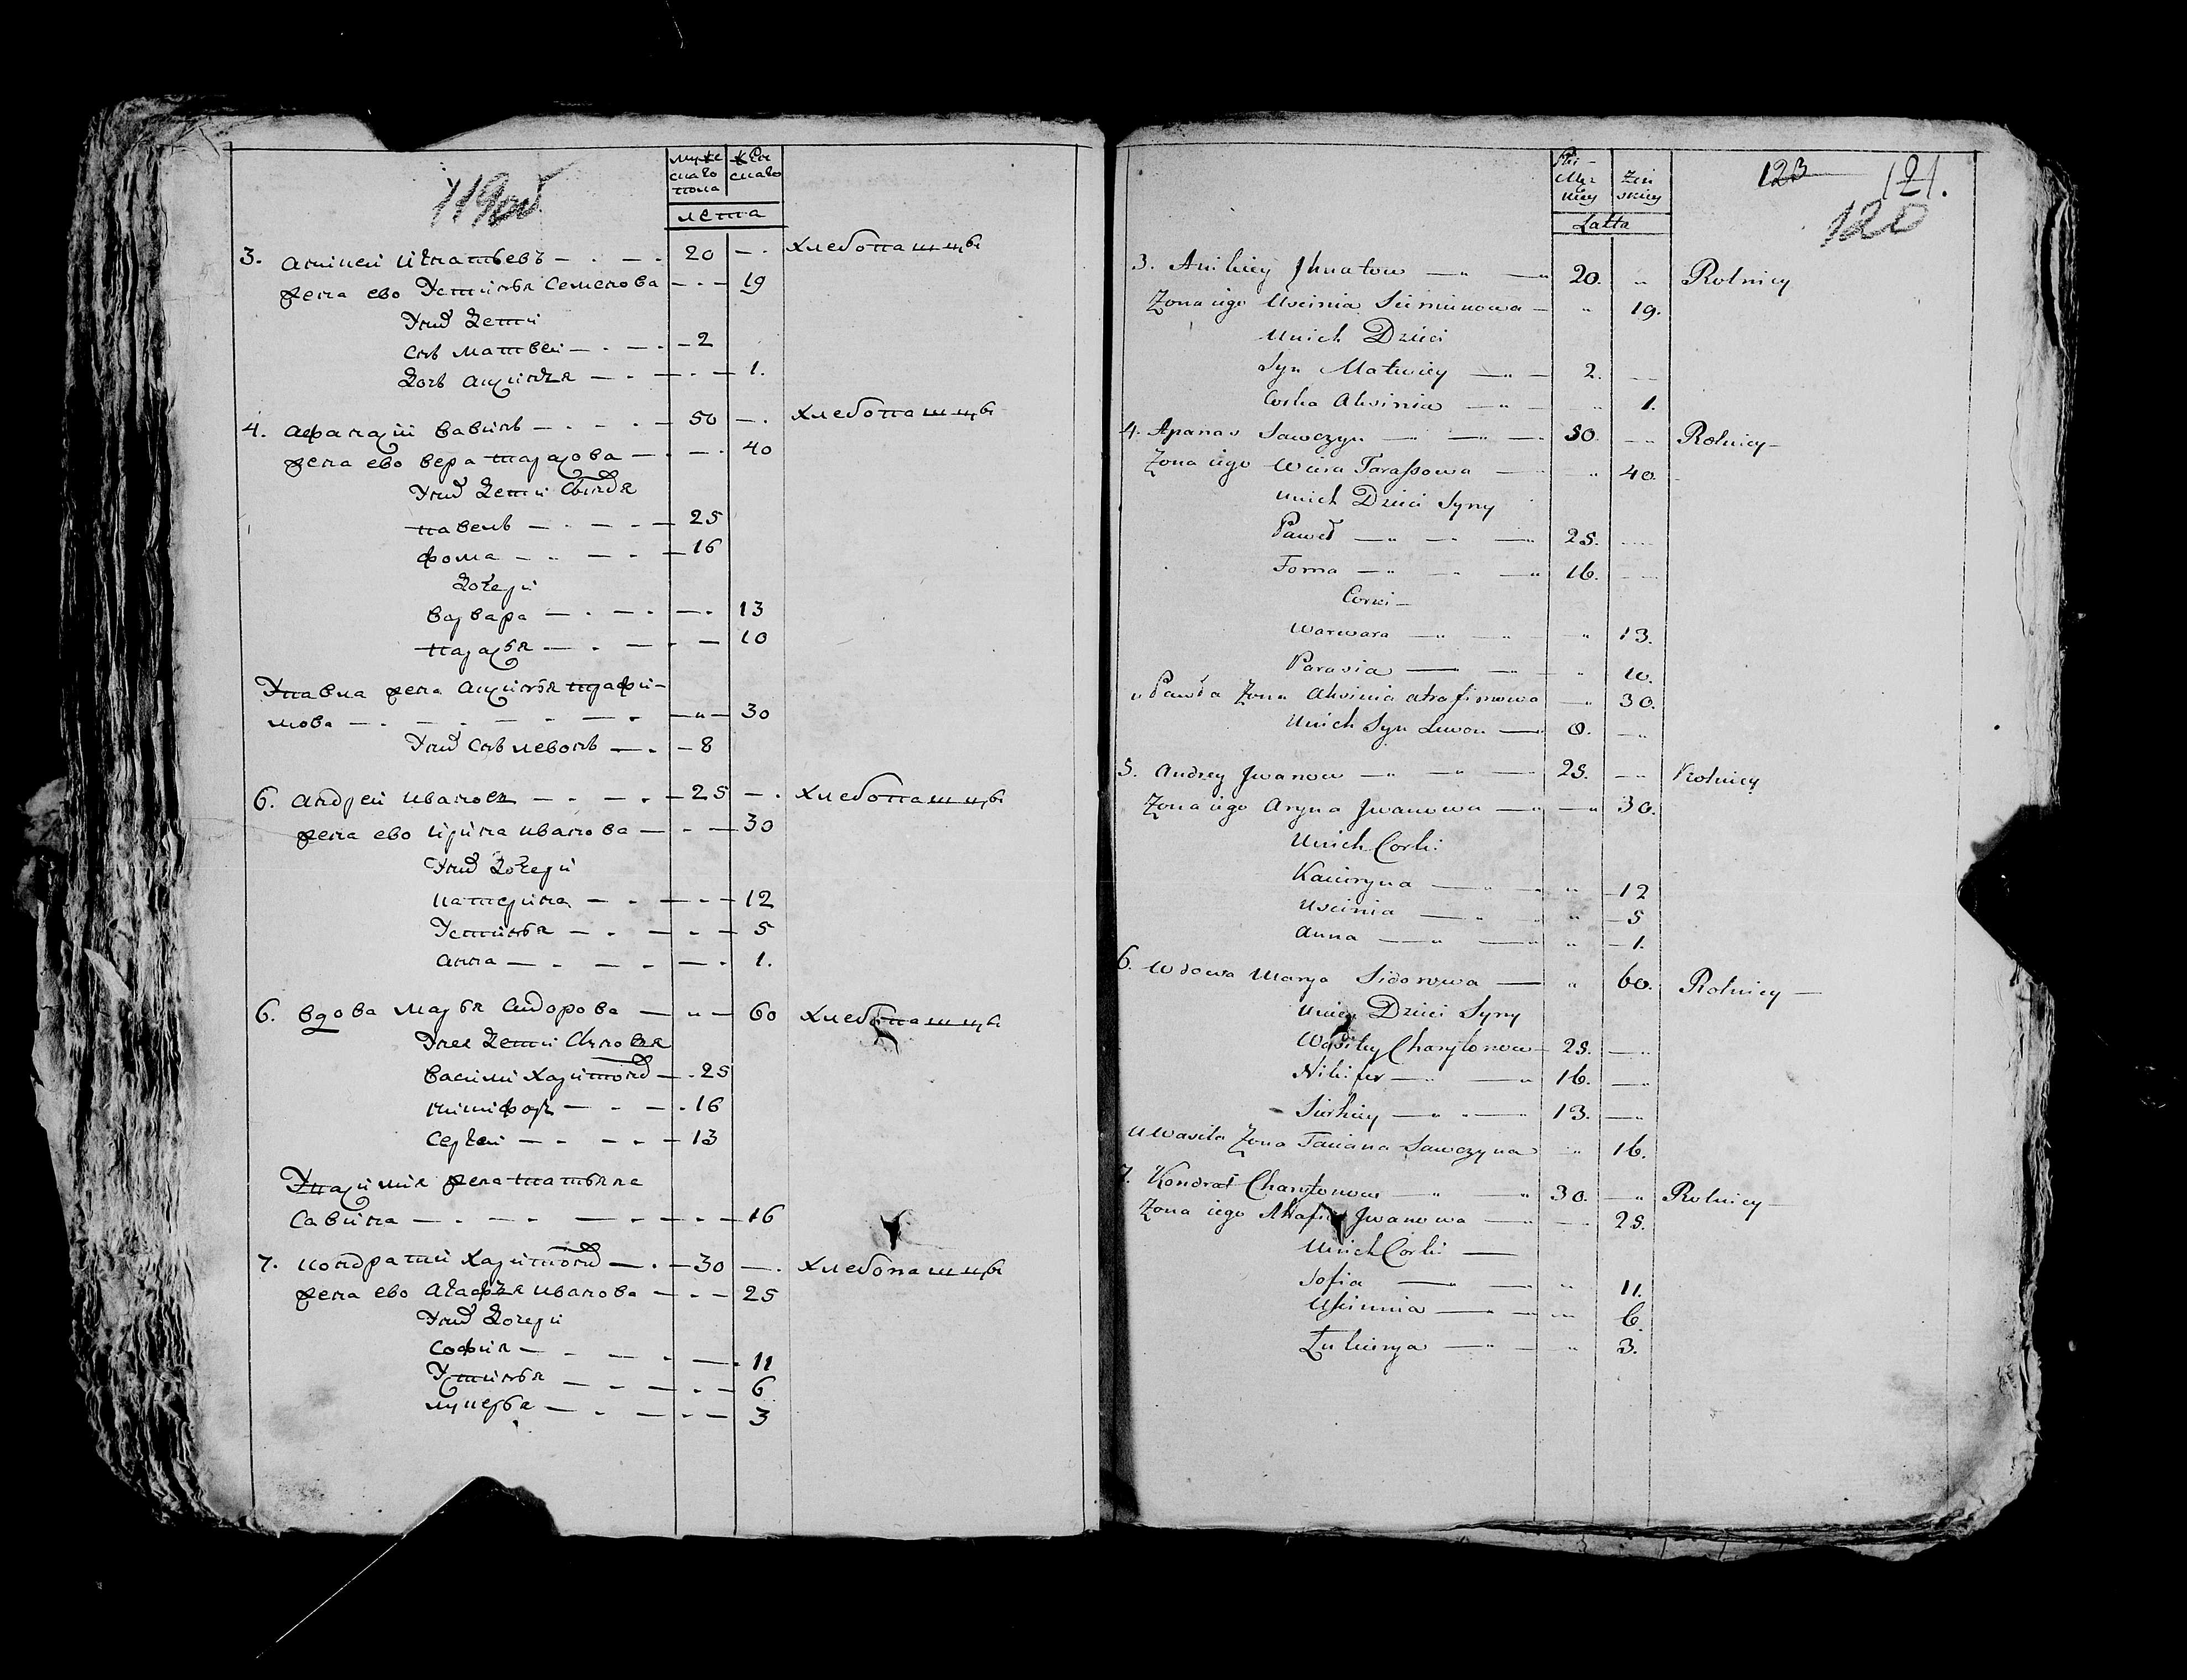 119об
муже
скаго
пола
женскаго
лета
3. Аникей Игнатьевъ — . — . — 20 — . хлебопашцы
жена ево Устинья Семенова — . — 19
У них дети
сын Матвей — . — . — 2
дочь Аксинья — . — . — 1.
4. Афанасий Савин — . — . — 50 — . хлебопашцы
жена ево Вера Тарасова — . — . 40
У них дети сыновья
Павел — . — . — 25
Фома — . — . — 16
дочери
Варвара — . — . — . 13
Парасья — . — . — 10
У Павла жена Аксинья Трафи-
мова — . — . — . — 30
У них сын Левон — . — 8
6. Андрей Иванов — . — . — 25 — . хлебопашцы
жена ево Ирина Иванова — . — 30
У них дочери
Катерина — . — . — 12
Устинья — . — . — 5
Анна — . — . — . 1.
6. Вдова Марья Сидорова — „ — 60 хлебопашцы
У нея дети сыновья
Василий Харитонов — . 25
Никифор — . — . 16
Сергей — . — . — 13
У Василия жена Татьяна
Савина — . — . — . — 16
7. Кондратий Харитонов — . — 30 — . хлебопашцы
жена ево Агафья Иванова — . — 25
У них дочери
Софья — . — . — . 11
Устинья — . — . — 6
Лукерья — . — . — 3
123 121.
120
Żeń
skiey
Latta
3. Anikiey Jhnatow — „ — „ 20. „ Rolnicy
Zona iego Uscinia Siemionowa — „ 19.
Unich Dzieci
Syn Matwiey — „ — 2. —
Corka Aksinia — „ — „ 1.
4. Apanas Sawczyn — „ — „ — 50. — „ Rolnicy —
Zona iego Wiera Tarassowa — „ 40.
Unich Dzieci Syny
Paweł — „ — „ — „ 25. —
Foma — „ — „ — „ 16. —
Corki —
Warwara — „ — „ 13.
Parasia — „ — „ 10.
u Pawła Zona Aksinia Atrafimowa — „ 30.
Unich Syn Lewon — 8. — „
5. Andrey Jwanow — „ — „ — 25. — „ Rolnicy
Zona iego Aryna Jwanowa — „ — „ 30.
Unich Corki
Kacieryna — „ — „ — 12
Uscinia — „ — „ — 5
Anna — „ — „ — 1.
6. Wdowa Marya Sidorowa — „ 60. Rolnicy —
Uniey Dzieci Syny
Wasiley Charytonow — 25. — „
Nikifer — „ — „ 16. — „
Sierhiey — „ — „ 13. — „
u Wasila Zona Taciana Sawczyna „ 16.
7. Kondrat Charytonow — „ — „ 30. — „ Rolnicy —
Zona iego Ahafia Jwanowa — „ — 25.
Unich Corki —
Sofia — „ — „ „ 11.
Uscinnia — „ — „ 6.
Łukierya — „ — „ 3.